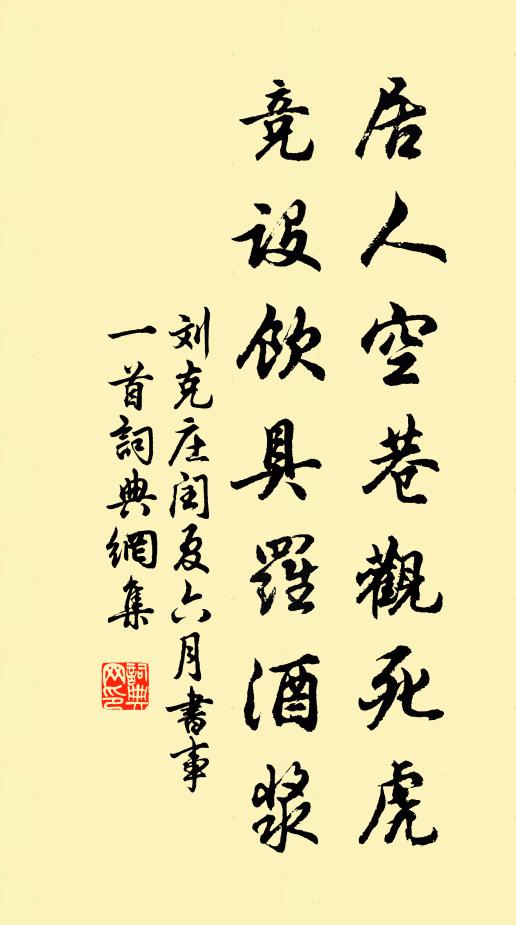 居人空巷觀死虎
竞设飲具羅酒浆
刘克庄闰夏六月書事
一首詞典網集
詞典
网印